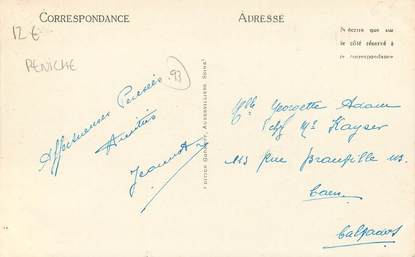 CORRESPONDANCE
ADRESSE
12 €
PENICHE
93
N'écrire que sur
le côté réservé à
la correspondance
Affectueuses Pensées
Amitiés
Jeannot
EDITION GODNEFF, AUBERVILLIERS, SEINE
Mlle Georgette Adam
chez Mr Kayser
113 Rue 113
Caen
Calvados